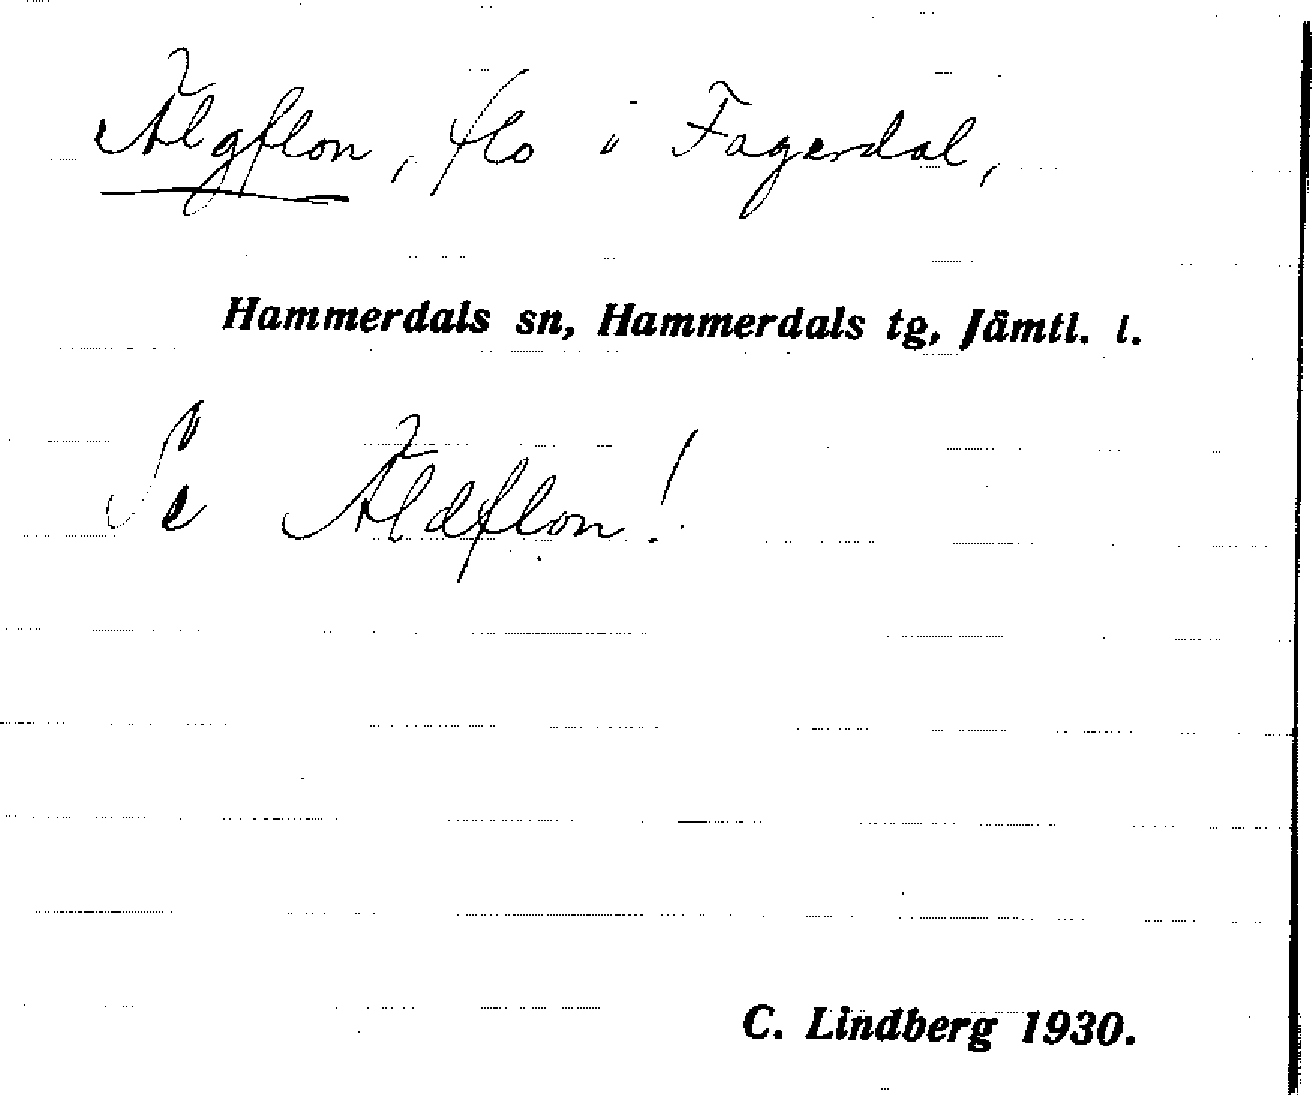 Älgflon, flo i Fagerdal,
Hammerdals sn, Hammerdals tg, Jämtl. l.
Se Äldflon!
C. Lindberg 1930.